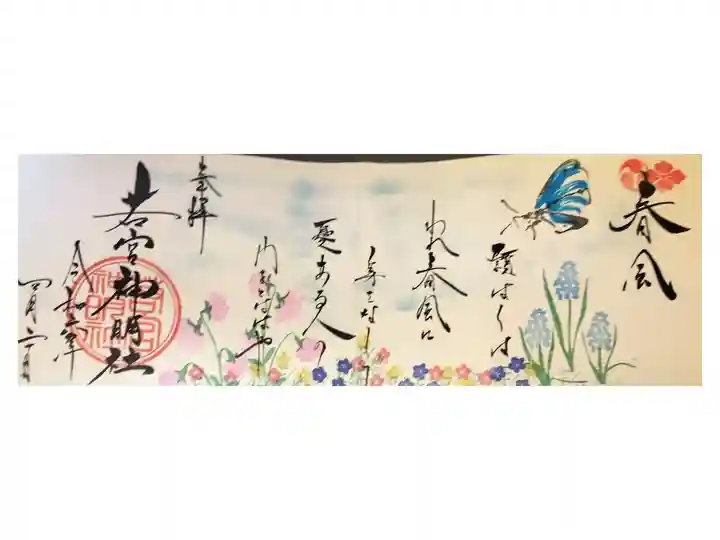 春風
願はくは
われ春風に
身をなして
憂ある人の
門をとはばや
奉拝
若宮神明社
令和三年